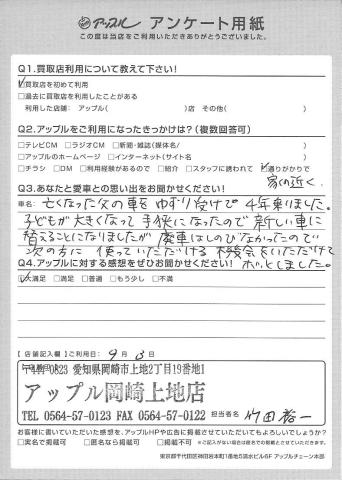 アップル アンケート用紙
この度は当店をご利用いただきありがとうございました。
Q1.買取店利用について教えて下さい!
☑買取店を初めて利用
□過去に買取店を利用したことがある
利用した店舗: アップル( )店 その他( )
Q2.アップルをご利用になったきっかけは?(複数回答可)
□テレビCM □ラジオCM □新聞・雑誌(媒体名/ )
□アップルのホームページ □インターネット(サイト名 )
□チラシ □DM □利用経験があるので □紹介 □スタッフに誘われて ☑通りがかりで
家の近く
Q3.あなたと愛車との思い出をお聞かせください!
車名: 亡くなった父の車をゆずり受けて4年乗りました。
子どもが大きくなって手狭になったので新しい車に
替えることになりましたが廃車はしのびなかったので
次の方に使っていただける機会をいただけて
ホッとしました。
Q4.アップルに対する感想をぜひお聞かせください!
☑大満足 □満足 □普通 □もう少し □不満
【店舗記入欄】ご利用日: 9月3日
〒444-0823 愛知県岡崎市上地2丁目19番地1
アップル岡崎上地店
TEL 0564-57-0123 FAX 0564-57-0122
担当者名 竹田裕一
お客様に書いていただいた感想を、アップルHPや広告に掲載させていただいてもよろしいでしょうか?
□実名で掲載可 □匿名なら掲載可 □掲載不可 ※ご記入がない場合は匿名での掲載とさせていただきます。
東京都千代田区神田岩本町1番地5清水ビル6F アップルチェーン本部